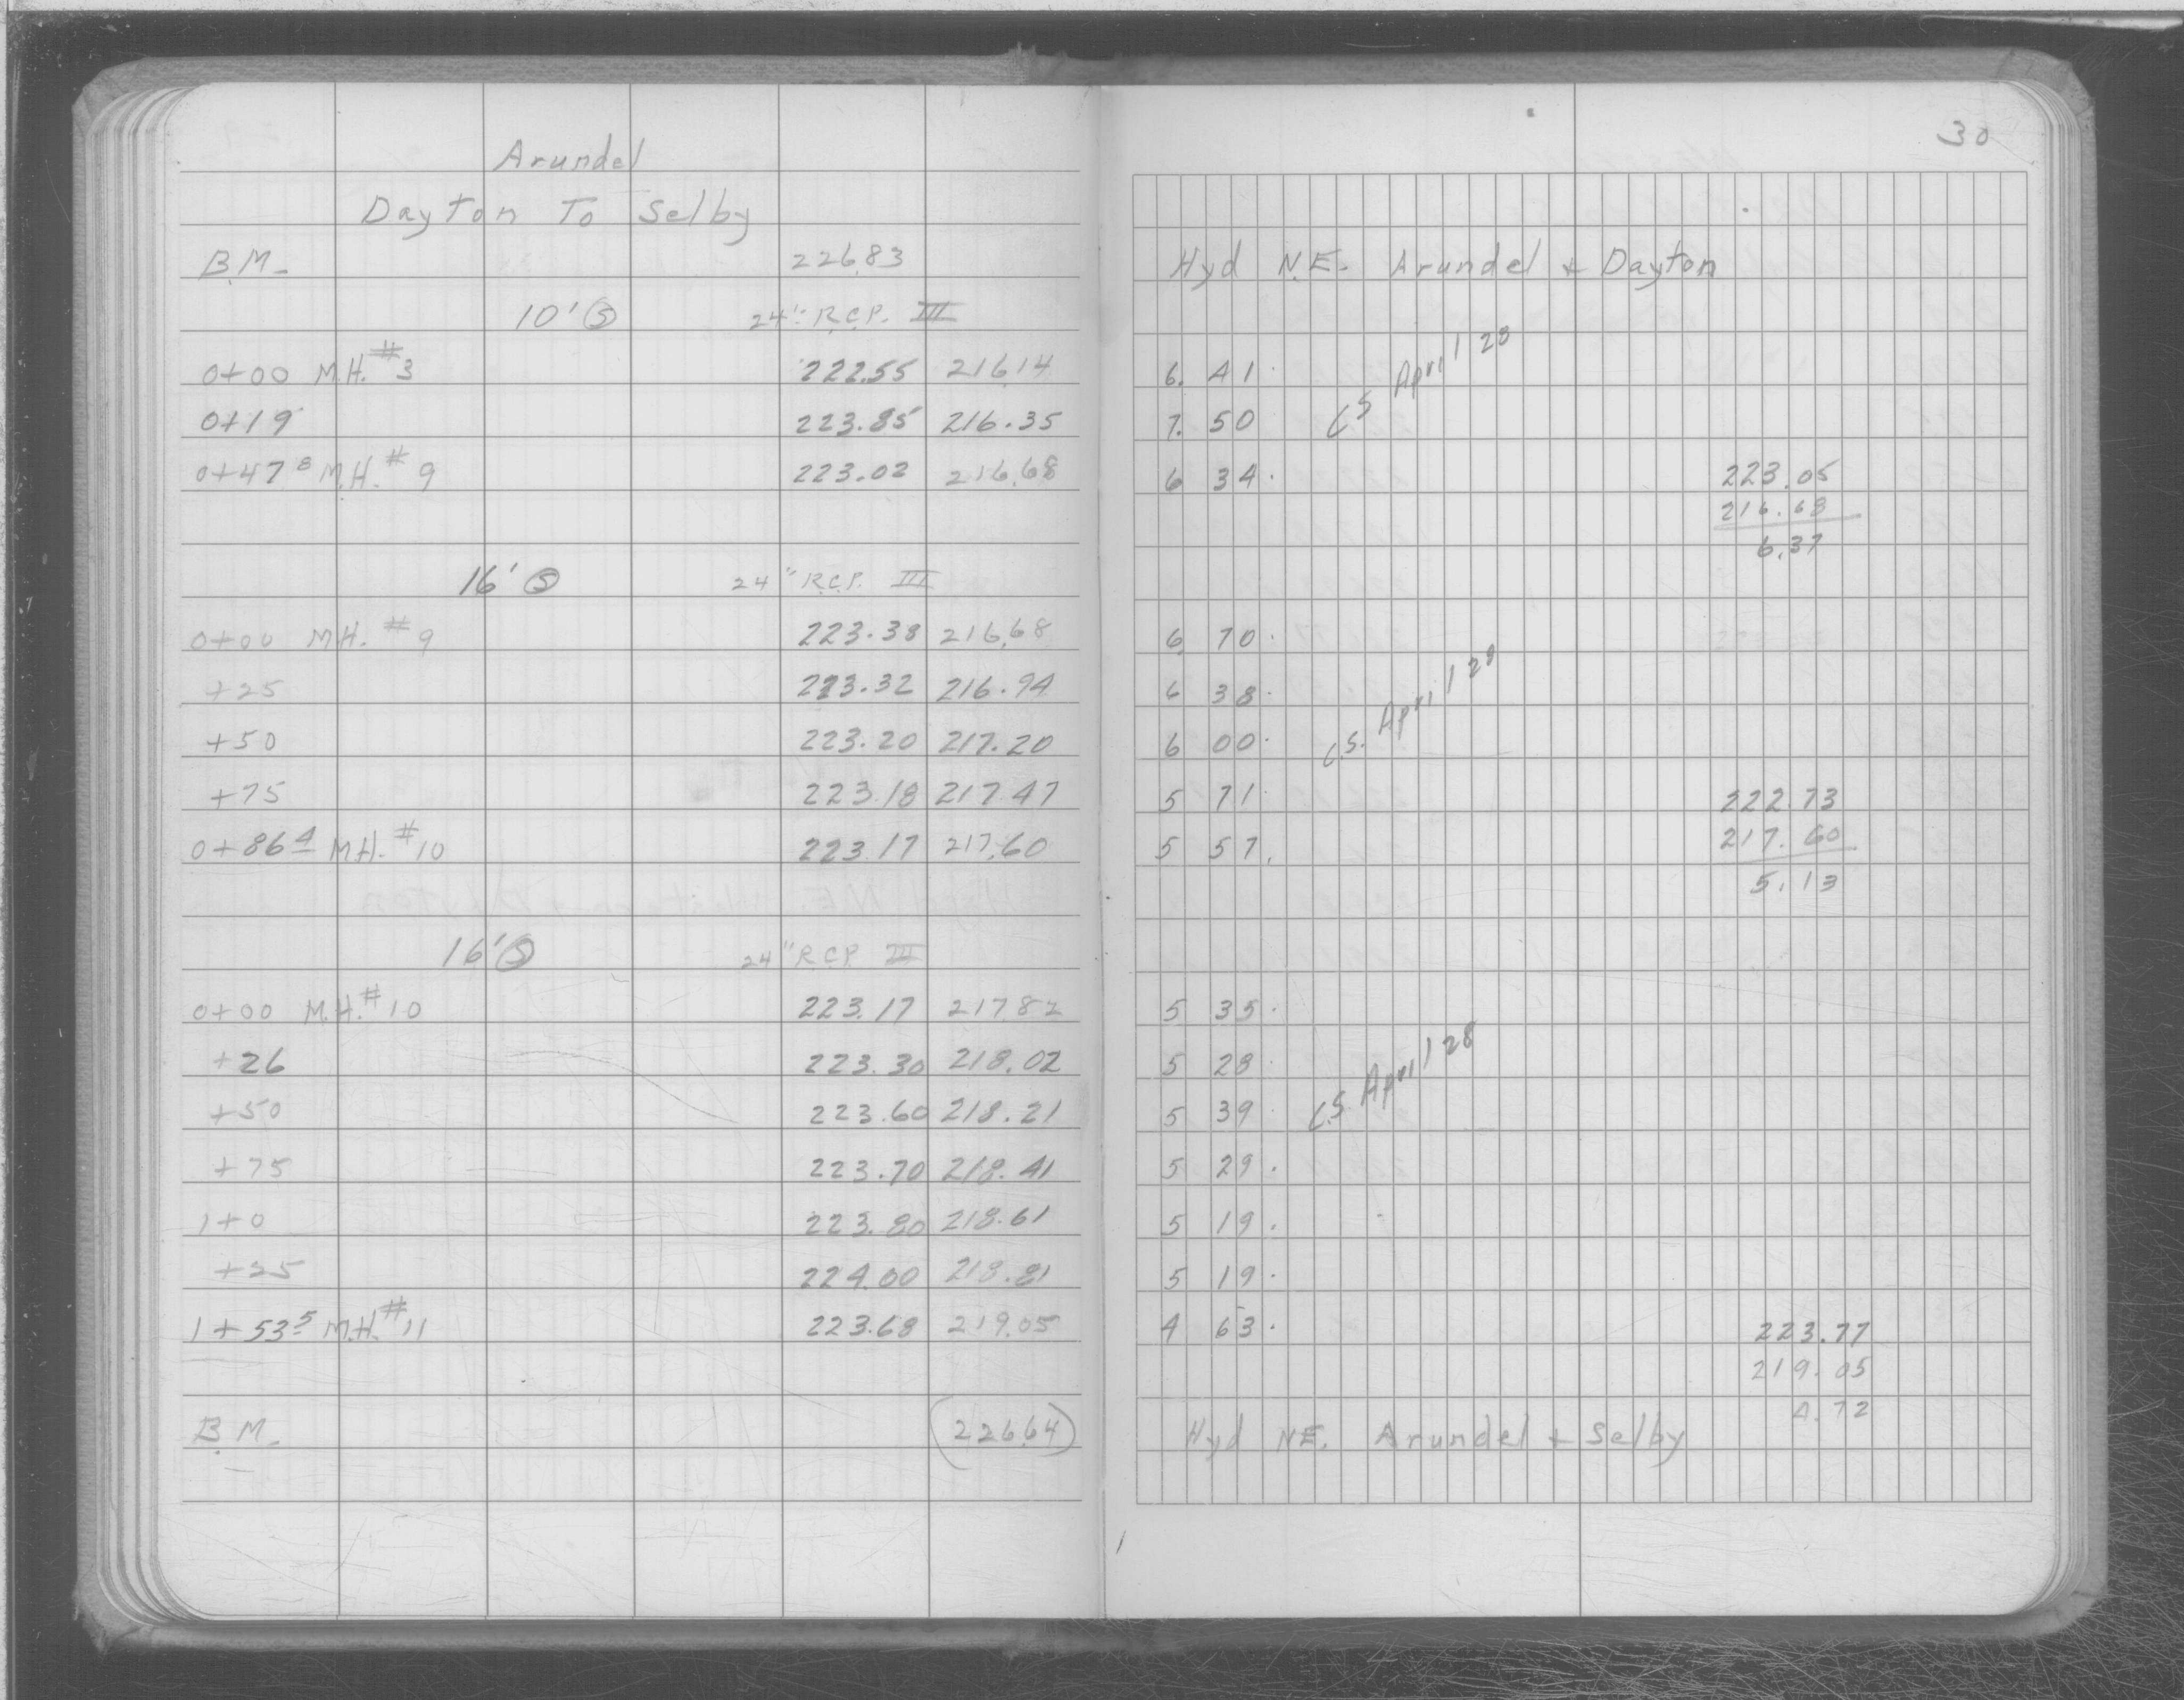 Arundel
Dayton To Selby
B.M. 226.83
10' Ⓢ 24" R.C.P. III
0+00 M.H. #3 222.55 216.14
0+19 223.85 216.35
0+47 8 M.H. # 9 223.02 216.68
16' Ⓢ 24" R.C.P. III
0+00 M.H. #9 223.38 216.68
+25 223.32 216.94
+50 223.20 217.20
+75 223.18 217.47
0+86 4 M.H. #10 223.17 217.60
16' Ⓢ 24" R.C.P. III
0+00 M.H. #10 223.17 217.82
+26 223.30 218.02
+50 223.60 218.21
+75 223.70 218.41
1+0 223.80 218.61
+25 224.00 218.81
1+53 5 M.H. #11 223.68 219.05
B.M. (226.64)
30
Hyd N.E. Arundel + Dayton
6. 41
7. 50 C.S April 28
6 34 223.05
216.68
6.37
6. 70
6 38
6 00 C.S. April 28
5 71 222.73
5 57 217.60
5.13
5 35
5 28
5 39 C.S April 28
5 29
5 19
5 19
4 63 223.77
219.05
4.72
Hyd N.E. Arundel + Selby